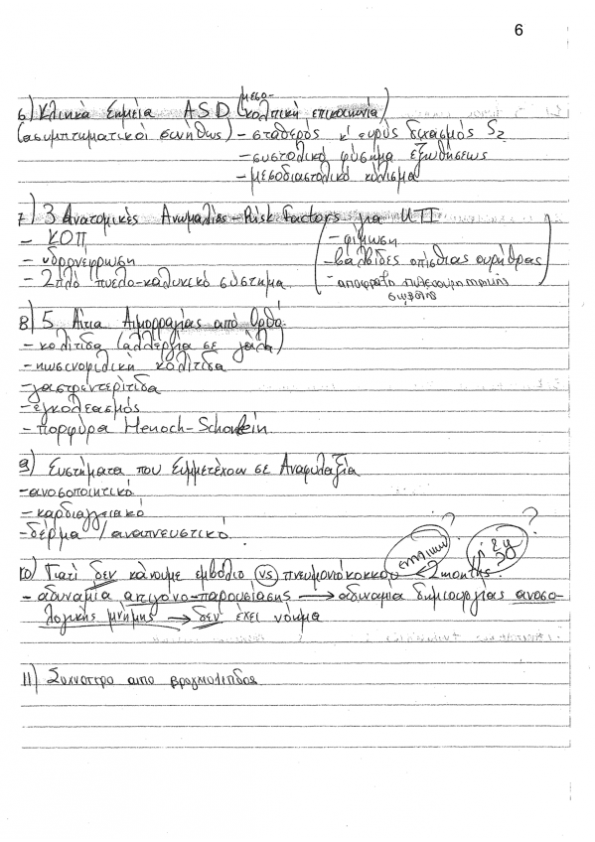 6
6) Κλινικά Σημεία ASD (μεσο-κολπική επικοινωνία)
(ασυμπτωματικοί συνήθως) - σταθερός κ' ευρύς διχασμός S2
- συστολικό φύσημα εξωθήσεως
- μεσοδιαστολικό κύλισμα
7) 3 Ανατομικές Ανωμαλίες - Risk Factors για UTI
- ΚΟΠ
- υδρονέφρωση
- 2πλό πυελο-καλυκικό σύστημα
(- φίμωση
- βαλβίδες οπίσθιας ουρήθρας
- αποφρακτ. πυελοουρητηρική
8) 5 Αίτια Αιμορραγίας από Ορθό:
- κολίτιδα (αλλεργία σε γάλα)
- ηωσινοφιλική κολίτιδα
- γαστρεντερίτιδα
- εγκολεασμός
- πορφύρα Henoch-Schonlein
9) Συστήματα που Συμμετέχουν σε Αναφυλαξία
- ανοσοποιητικό
- καρδιαγγειακό
- δέρμα / αναπνευστικό
10) Γιατί δεν κάνουμε εμβόλιο vs πνευμονιόκοκκου <2 months. ? (ή 2y ?
- αδυναμία αντιγόνο-παρουσίασης → αδυναμία δημιουργίας ανοσο-
λογικής μνήμης → δεν έχει νόημα
11) Συχνότερο αιτιο βρογχιολιτιδας